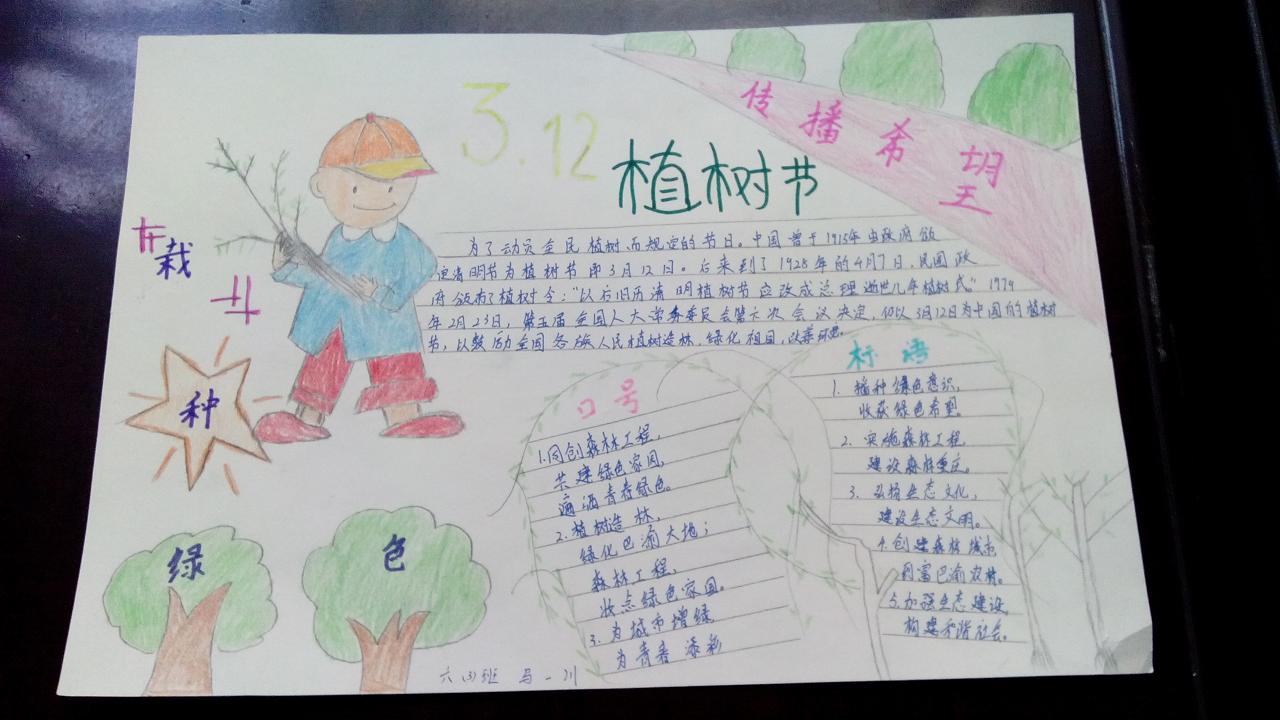 3.12
植树节
传播希望
栽
种
绿
色
为了动员全民植树而规定的节日。中国曾于1915年由政府规
定清明节为植树节即3月12日。后来到了1928年的4月7日,民国政
府颁布了植树令:“以后旧历清明植树节应改成总理逝世几年植树式。”1979
年2月23日,第五届全国人大常务委员会第六次会议决定,仍以3月12日为中国的植树
节,以鼓励全国各族人民植树造林,绿化祖国,改善环境。
口号
1.同创森林工程,
共建绿色家园,
遍洒青春绿色。
2.植树造林,
绿化巴渝大地;
森林工程,
妆点绿色家园。
3.为城市增绿
为青春添彩
标语
1.播种绿色意识,
收获绿色希望。
2.实施森林工程,
建设森林重庆。
3.弘扬生态文化,
建设生态文明。
4.创建森林城市,
同富巴渝农林。
5.加强生态建设,
构建和谐社会。
六四班 马一川